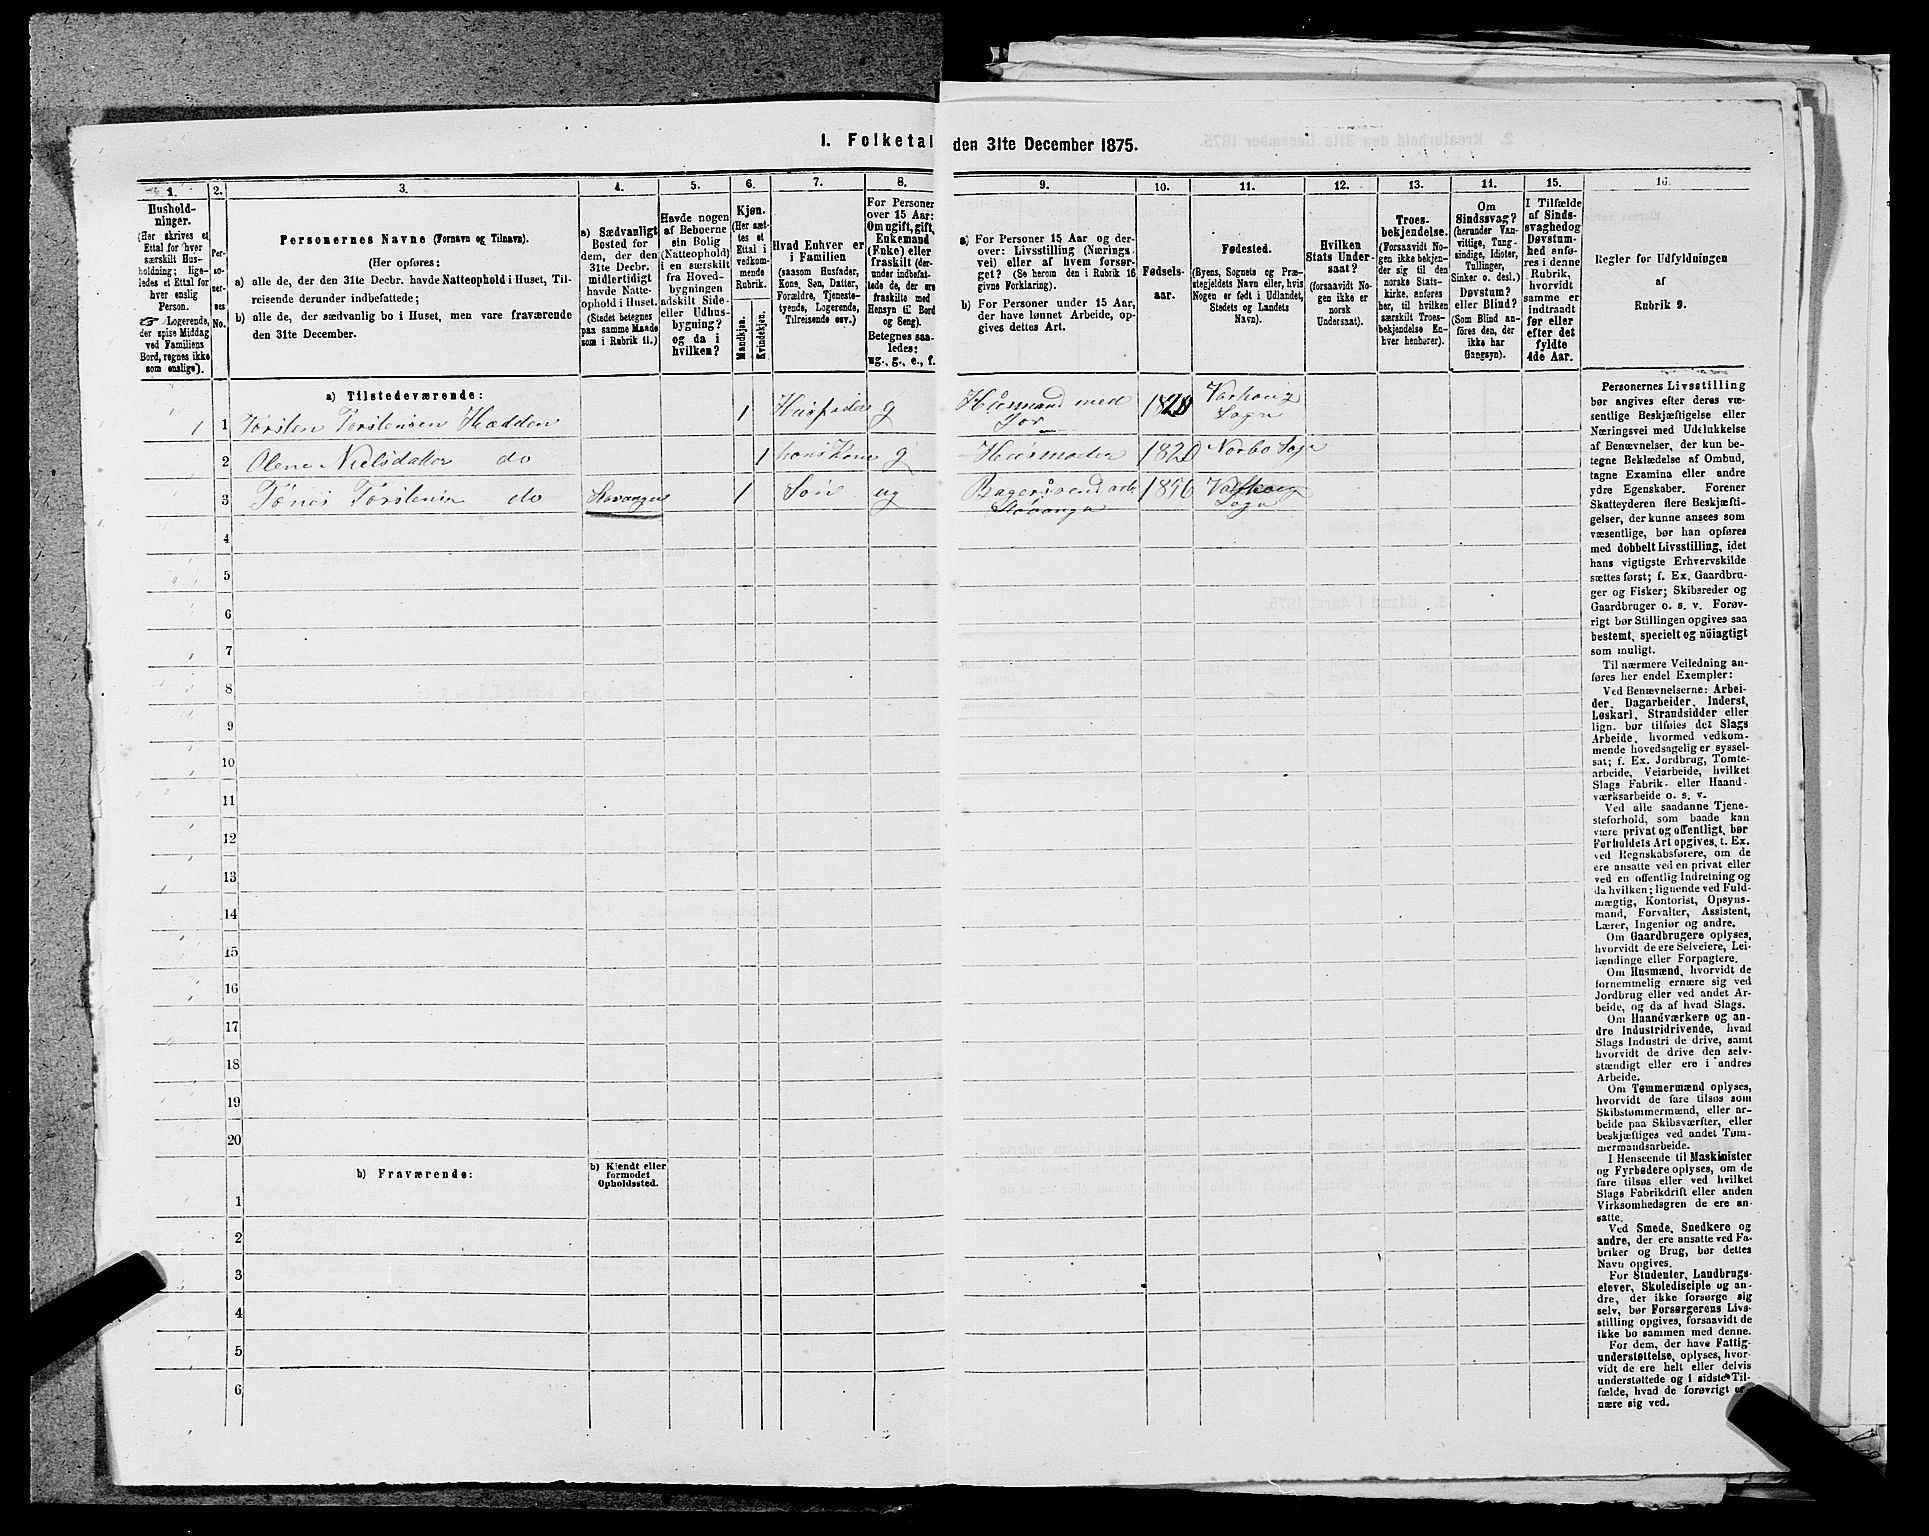 1. Folketal den 31te December 1875.
1. 2. 3. 4. 5. 6. 7. 8. 9. 10. 11. 12. 13. 11. 15. 16.
Hushold-
ninger.
(Her skrives et
Ettal for hver
særskilt Hus-
holdning; lige-
ledes et Ettal for
hver enslig
Person.
☞ Logerende,
der spise Middag
ved Familiens
Bord, regnes ikke
som enslige).
Per-
so-
ner-
nes
No.
Personernes Navne (Fornavn og Tilnavn).
(Her opføres:
a) alle de, der den 31te Decbr. havde Natteophold i Huset, Til-
reisende derunder indbefattede;
b) alle de, der sædvanlig bo i Huset, men vare fraværende
den 31te December.
a) Sædvanligt
Bosted for
dem, der den
31te Decbr.
midlertidigt
havde Natte-
ophold i Huset.
(Stedet betegnes
paa samme Maade
som i Rubrik 11.)
Havde nogen
af Beboerne
sin Bolig
(Natteophold)
i en særskilt
fra Hoved-
bygningen
adskilt Side-
eller Udhus-
bygning?
og da i
hvilken?
Kjøn.
(Her sæt-
tes et
Ettal i
vedkom-
mende
Rubrik.
Mandkjøn.
Kvindekjøn.
Hvad Enhver er
i Familien
(saasom Husfader,
Kone, Søn, Datter,
Forældre, Tjeneste-
tyende, Logerende,
Tilreisende osv.)
For Personer
over 15 Aar:
Om ugift, gift,
Enkemand
(Enke) eller
fraskilt (der-
under indbefat-
tede de, der ere
fraskilte med
Hensyn til Bord
og Seng).
Betegnes saa-
ledes:
ug., g., e., f.
a) For Personer 15 Aar og der-
over: Livsstilling (Nærings
vei) eller af hvem forsør-
get? (Se herom den i Rubrik 16
givne Forklaring).
b) For Personer under 15 Aar,
der have lønnet Arbeide, op-
gives dettes Art.
Fødsels-
aar.
Fødested.
(Byens, Sognets og Præ-
stegjeldets Navn eller, hvis
Nogen er født i Udlandet,
Stedets og Landets
Navn).
Hvilken
Stats Under-
saat?
(forsaavidt No-
gen ikke er
norsk
Undersaat).
Troes-
bekjendelse.
(Forsaavidt No-
gen ikke bekjen-
der sig til den
norske Stats-
kirke, anføres
her, til hvilken
særskilt Troes-
bekjendelse En-
hver henhører).
Om
Sindssvag?
(herunder Van-
vittige, Tung-
sindige, Idioter,
Tullinger,
Sinker o. desl.)
Døvstum?
eller Blind?
(Som Blind an-
føres den, der
ikke har
Gangsyn).
I Tilfælde
af Sinds-
svaghed og
Døvstum-
hed anfø-
res i denne
Rubrik,
hvorvidt
samme er
indtraadt
før eller
efter det
fyldte
4de Aar.
Regler for Udfyldningen
af
Rubrik 9.
a) Tilstedeværende:
1 1 Torsten Torstensen Hadden 1 Husfader g Huusmand med Jor 1820 Varhaug Sogn
2 Olene Nielsdatter do 1 hans Kone g Huusmoder 1820 Norbo Sogn
3 Tønes Torstensen do Stavanger 1 Søn ug Bagersvend Stavanger 1856 Varhaug Sogn
4
5
6
7
8
9
10
11
12
13
14
15
16
17
18
19
20
b) Fraværende:
b) Kjendt eller
formodet
Opholdssted.
1
2
3
4
5
6
Personernes Livsstilling
bør angives efter deres væ-
sentlige Beskjæftigelse eller
Næringsvei med Udelukkelse
af Benævnelser, der kun be-
tegne Beklædelse af Ombud,
tagne Examina eller andre
ydre Egenskaber. Forener
Skatteyderen flere Beskjæfti-
gelser, der kunne ansees som
væsentlige, bør han opføres
med dobbelt Livsstilling, idet
hans vigtigste Erhvervskilde
sættes først; f. Ex. Gaardbru-
ger og Fisker; Skibsreder og
Gaardbruger o. s. v. Forøv-
rigt bør Stillingen opgives saa
bestemt, specielt og nöiagtigt
som muligt.
Til nærmere Veiledning an-
føres her endel Exempler:
Ved Benævnelserne: Arbei-
der, Dagarbeider, Inderst,
Løskarl, Strandsidder eller
lign. bør tilføies det Slags
Arbeide, hvormed vedkom-
mende hovedsagelig er syssel-
sat; f. Ex. Jordbrug, Tomte-
arbeide, Veiarbeide, hvilket
Slags Fabrik- eller Haand-
værksarbeide o. s. v.
Ved alle saadanne Tjene-
steforhold, som baade kan
være privat og offentligt, bør
Forholdets Art opgives, t. Ex.
ved Regnskabsførere, om de
ere ansatte ved en privat eller
ved en offentlig Indretning og
da hvilken; lignende ved Fuld-
mægtig, Kontorist, Opsyns-
mand, Forvalter, Assistent,
Lærer, Ingeniør og andre.
Om Gaardbrugere oplyses,
hvorvidt de ere Selveiere, Lei-
lændinge eller Forpagtere.
Om Husmænd, hvorvidt de
fornemmelig ernære sig ved
Jordbrug eller ved andet Ar-
beide, og da af hvad Slags.
Om Haandværkere og an-
dre Industridrivende, hvad
Slags Industri de drive, samt
hvorvidt de drive den selv-
stændigt eller ere i andres
Arbeide.
Om Tømmermænd oplyses,
hvorvidt de fare tilsøs som
Skibstømmermænd, eller ar-
beide paa Skibsværfter, eller
beskjæftiges ved andet Tøm-
mermandsarbeide.
I Henseende til Maskinister
og Fyrbødere oplyses, om de
fare tilsøs eller ved hvilket
Slags Fabrikdrift eller anden
Virksomhedsgren de ere an-
satte.
Ved Smede, Snedkere og
andre, der ere ansatte ved Fa-
briker og Brug, bør dettes
Navn opgives.
For Studenter, Landbrugs-
elever, Skoledisciple og an-
dre, der ikke forsørge sig
selv, bør Forsørgerens Livs-
stilling opgives, forsaavidt de
ikke bo sammen med denne.
For dem, der have Fattig-
understøttelse, oplyses, hvor-
vidt de ere helt eller delvis
understøttede og i sidste Til-
fælde, hvad de forøvrigt er-
nære sig ved.